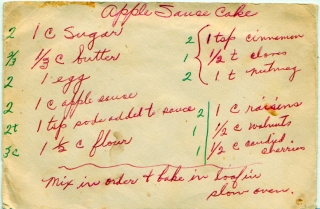 Apple Sause Cake
2 1 C Sugar
2/3 1/3 C butter
2 1 egg
2 1 C apple sause
2t 1 tsp soda added to sauce
3c 1 1/2 C flour
2 1 tsp cinnamon
1 1/2 t cloves
2 1 t nutmeg
2 1 C raisins
1 1/2 C walnuts
1 1/2 C candied cherries
Mix in order & bake in loaf in
slow oven.